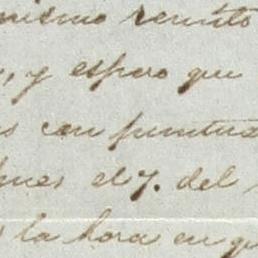 mismo remito
, y espero que
s con puntua
lunes el 7. del
s la hora en qu